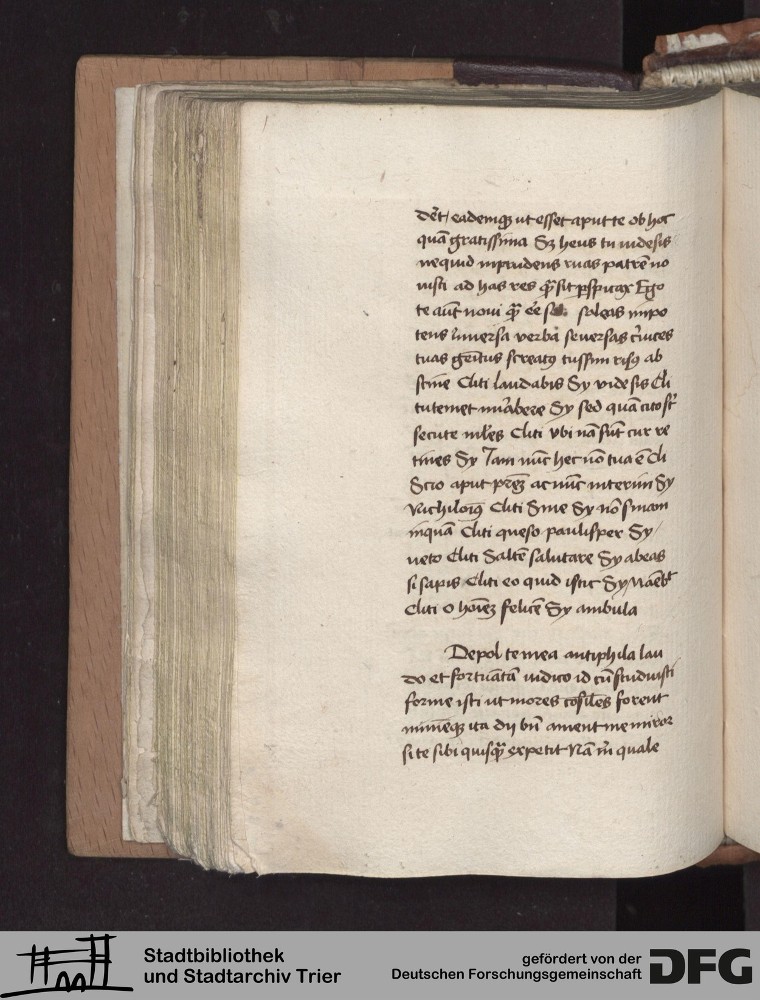 dēt, eademqꝫ ut esset aput te ob hoc
quā gratissima Sꝫ heus tu uidesis
nequid inprudens ruas patrē no
uisti ad has res qͣ̄ sit pspicax Ego
te aūt noui qͣ̄ eē soleas impo
tens Inuersa verba seuersas c̄uices
tuas gēitus screatꝰ tussim risꝰ ab
stine Cliti laudabis Sy vide sis Cli
tutemet mirabere Sy sed quā cito st̄
secute mlr̄es Cliti vbi nā sūt cur re
tines Sy Iam nūc hec nō tua ē Cli
Scio aput prēꝫ ac nūc interim Sy
Nichiloiꝰ Cliti Sine Sy nō sinam
inquā Cliti queso paulisper Sy
ueto Cliti Saltē salutare Sy abeas
si sapis Cliti eo quid istic Sy
Cliti O hoīeꝫ felicē Sy ambula
Depol te mea antiphila lau
do et fortūatā iudico id cū studuisti
forme isti ut mores cōsiles forent
minieqꝫ ita dij bn̄ ament me miror
si te sibi quisqͣ̄ expetit Nā m̄ quale
Stadtbibliothek
und Stadtarchiv Trier
gefördert von der
Deutschen Forschungsgemeinschaft
DFG